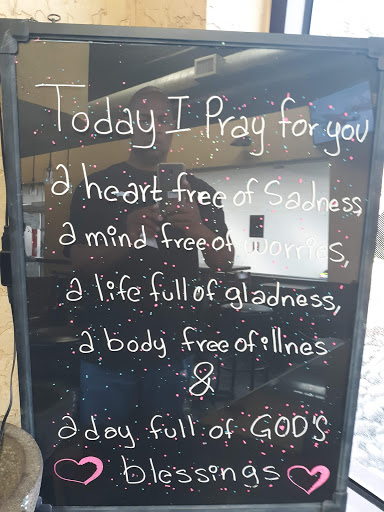 Today I Pray for you
a heart free of Sadness,
a mind free of worries,
a life full of gladness,
a body free of illnes
&
a day full of GOD'S
blessings